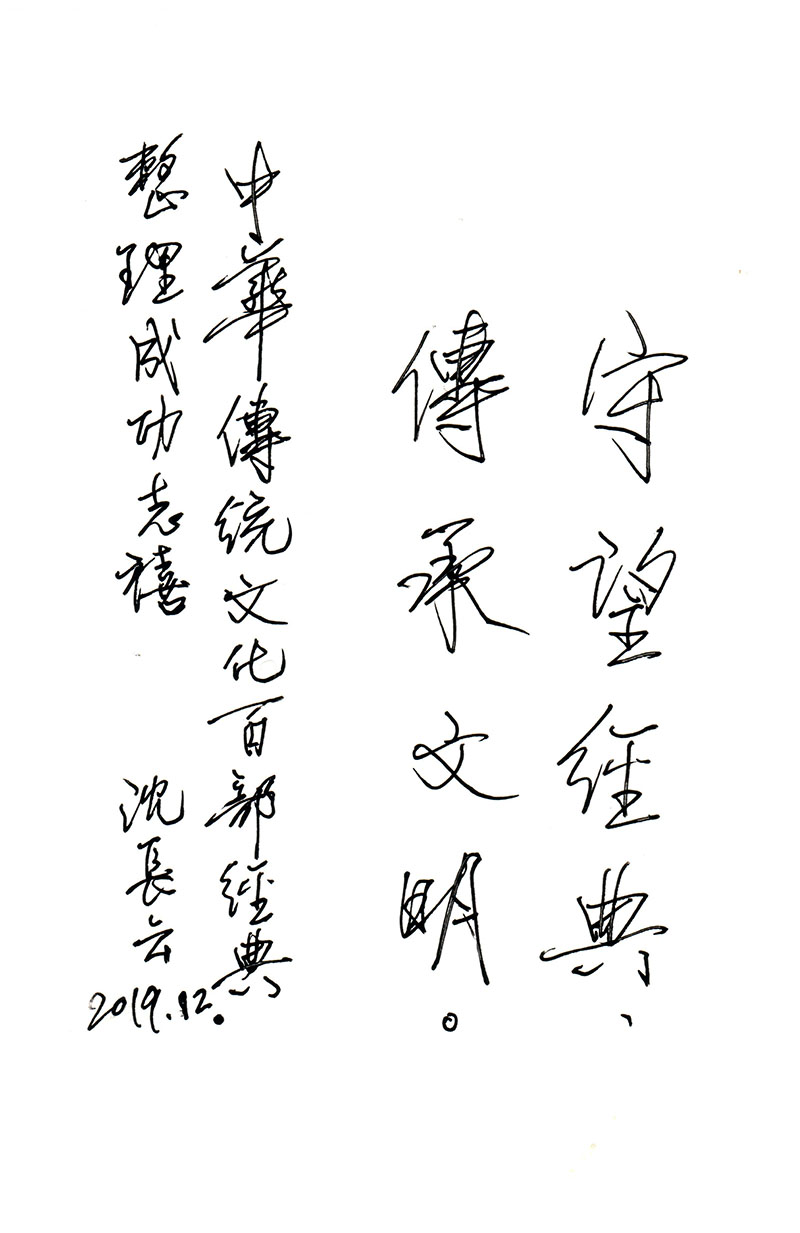 守望經典、
傳承文明。
中華傳統文化百部經典
整理成功志禧
沈長云
2019.12.